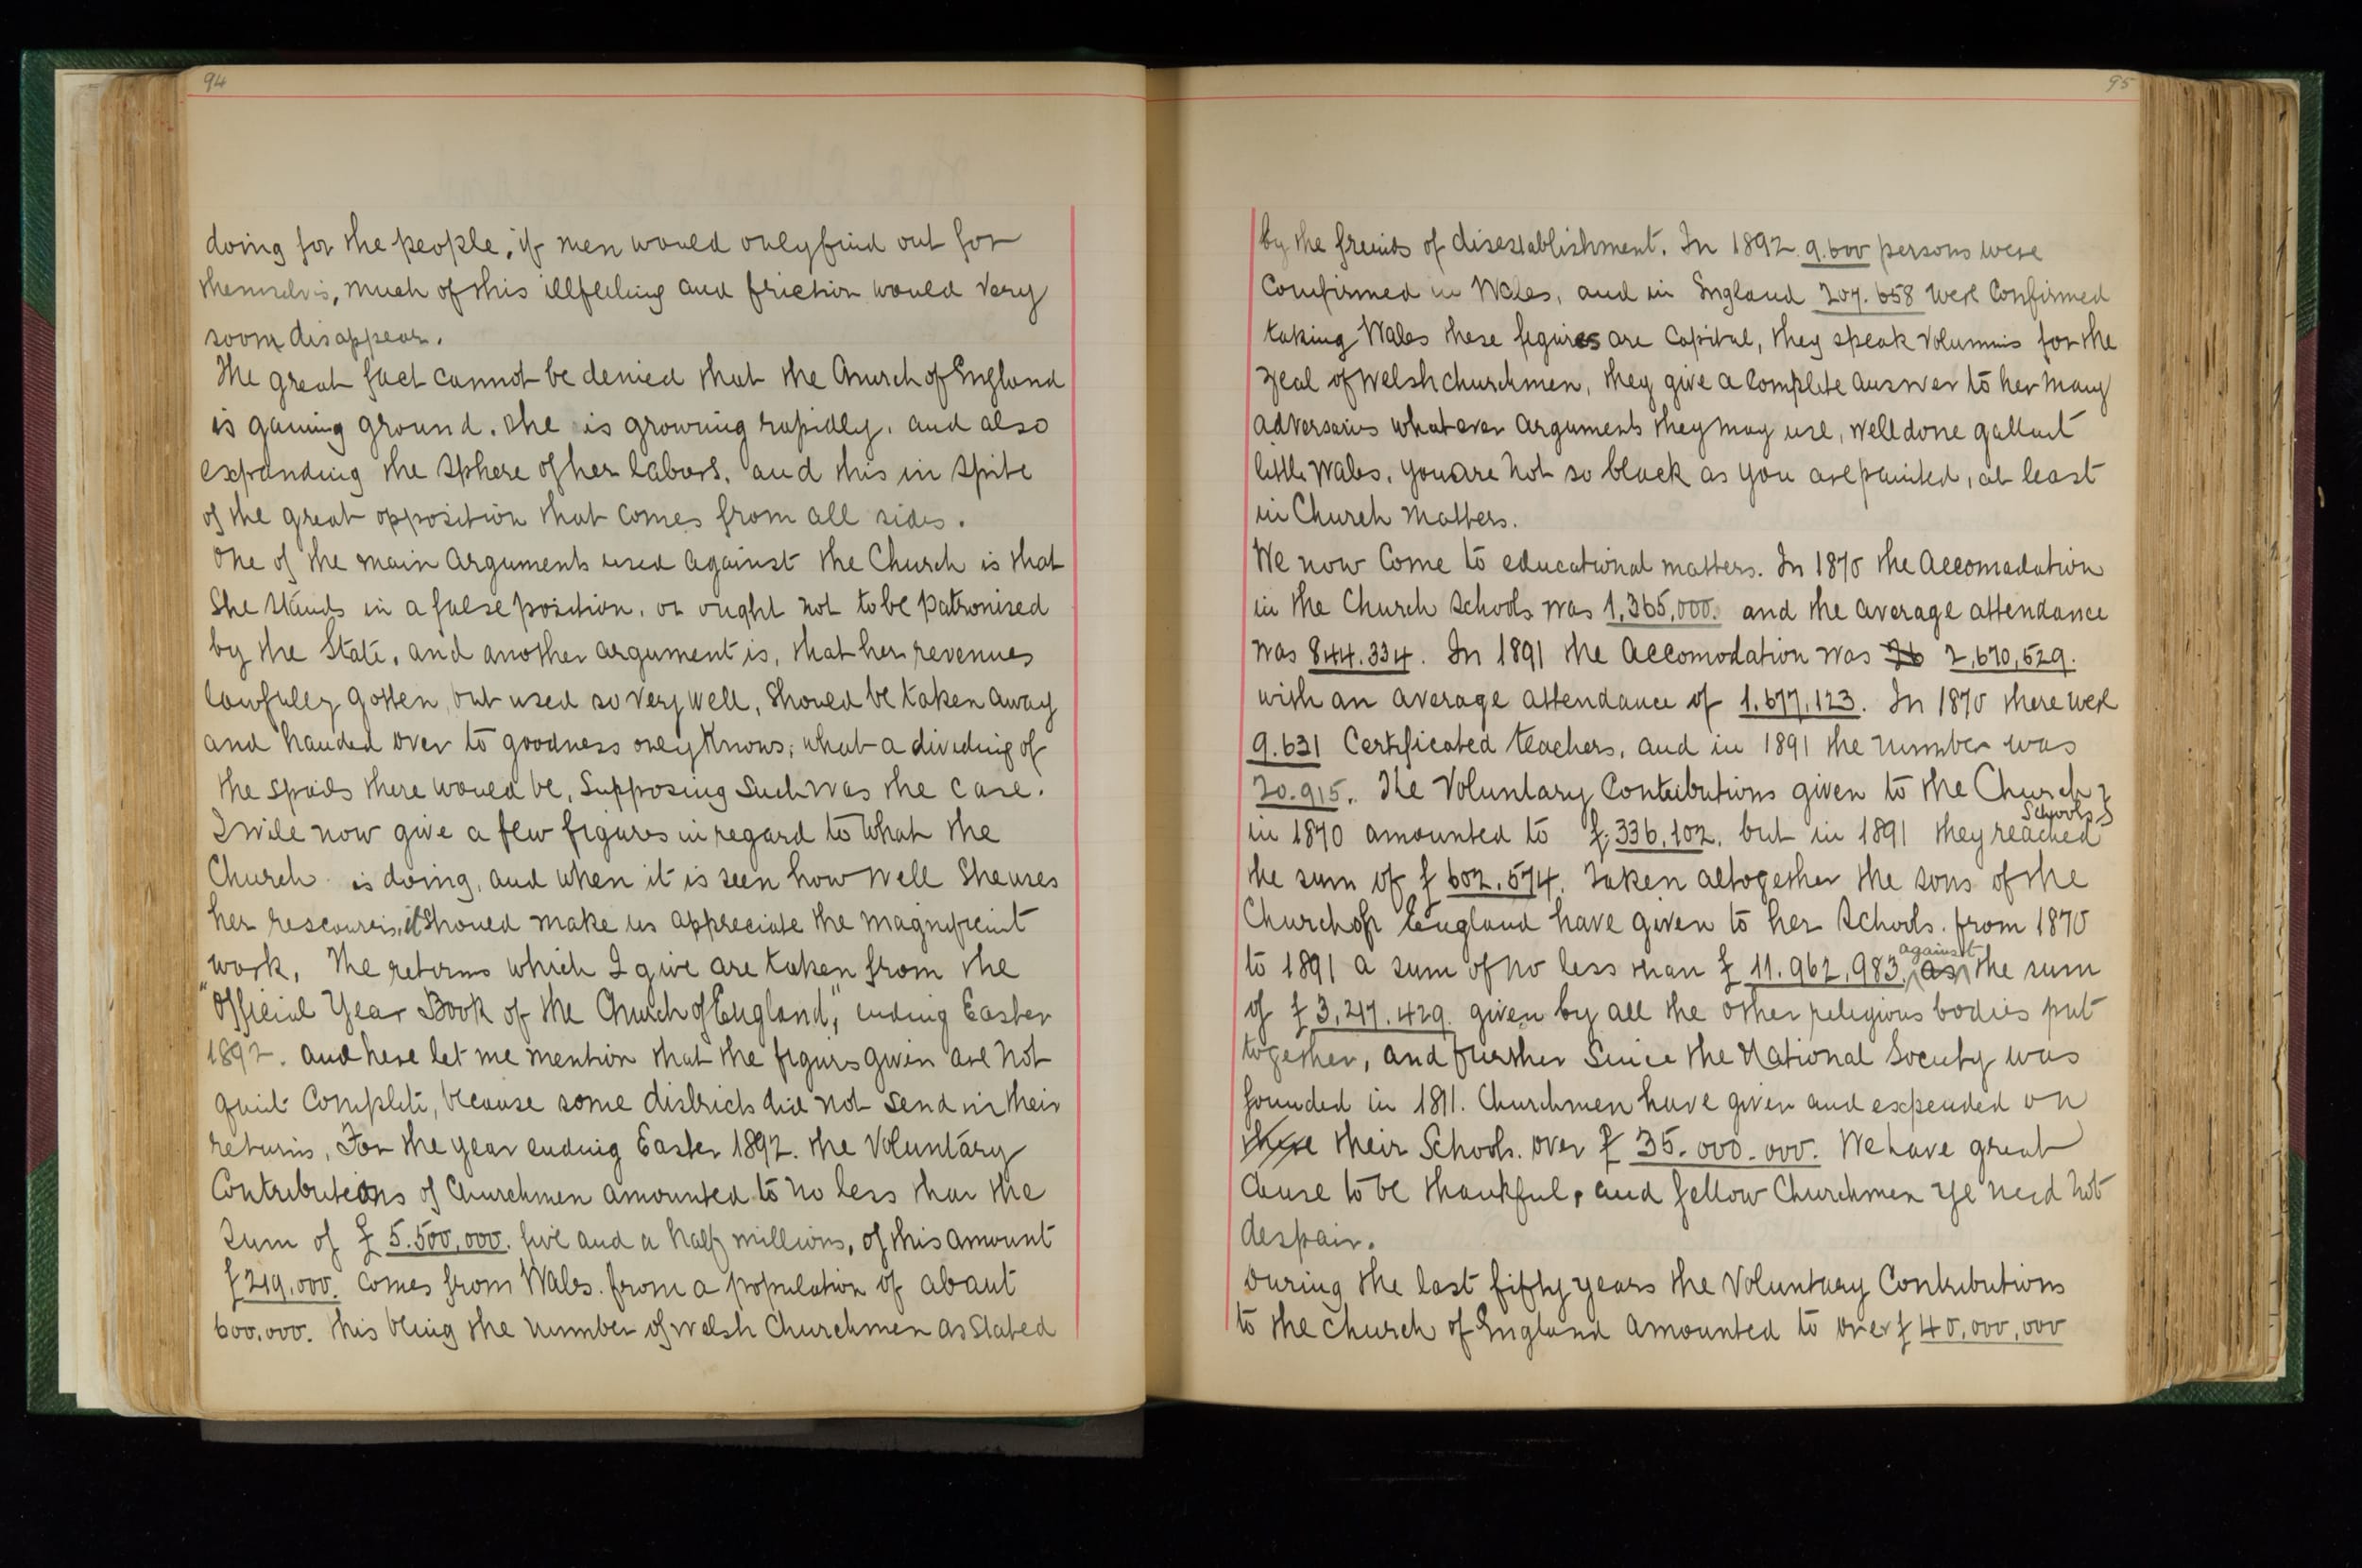 94
doing for the people, if men would only find out for
themselvis, much of this illfeeling and friction would very
soom disappear.
The great fact cannot be denied that the Church of England
is gaining ground. She is growing rapidly, and also
expanding the sphere of her labors, and this in spite
of the great opposition that comes from all sides.
One of the main arguments used against the Church is that
She stands in a false position, or ought not to be patronised
by the State, and another argument is, that her revenues
lawfully gotten, but used so very well, should be taken away
and handed over to goodness only knows; what a dividing of
the spoils there would be, supposing such was the case.
I will now give a few figures in regard to what the
Church is doing, and when it is seen how well She uses
her rescourcis, it should make us appreciate the magnificint
work. The returns which I give are taken from the
"Official Year Book of the Church of England", ending Easter
1892. and here let me mention that the figurs given are not
quit complete, because some districts did not send in their
returns, For the year ending Easter 1892. the Voluntary
Contributions of Churchmen amounted to no less than the
Sum of £5.500,000. five and a half millions, of this amount
£219.000. comes from Wales. from a population of about
600.000. this being the number of Welsh Churchmen as stated
95
by the freinds of disestablishment. In 1892 9.600 persons were
Comfirmed in Wales, and in England 207.658 were Confirmed
taking Wales these figures are Capital, they speak volumnis for the
zeal of Welsh churchmen, they give a complete answer to her many
adversaries whatever arguments they may use, well done gallant
little Wales, you are not so black as you are painted, at least
in Church matters.
We now Come to educational matters. In 1870 the Accomadation
in the Church Schools was 1,365,000. and the average attendance
was 844.334. In 1891 the Accomodation was 26 2,670,529.
with an average attendance of 1.677,123. In 1870 there were
9.631 Certificated teachers, and in 1891 the number was
20.915. The Voluntary Contributions given to the Church
Schools
in 1870 amounted to £336,102. but in 1891 they reached
the sum of £602.574. Taken altogether the sons of the
Church of England have given to her Schools. from 1870
against
to 1891 a sum of no less than £11.962,983. as the sum
of £3,217.429. given by all the other religious bodies put
together, and further Since the National Society was
founded in 1811. Churchmen have given and expended on
there their Schools. over £35.000.000. We have great
Cause to be thankful, and fellow Churchmen ye need not
despair.
During the last fifty years the Voluntary Contributions
to the church of England amounted to over £40,000,000